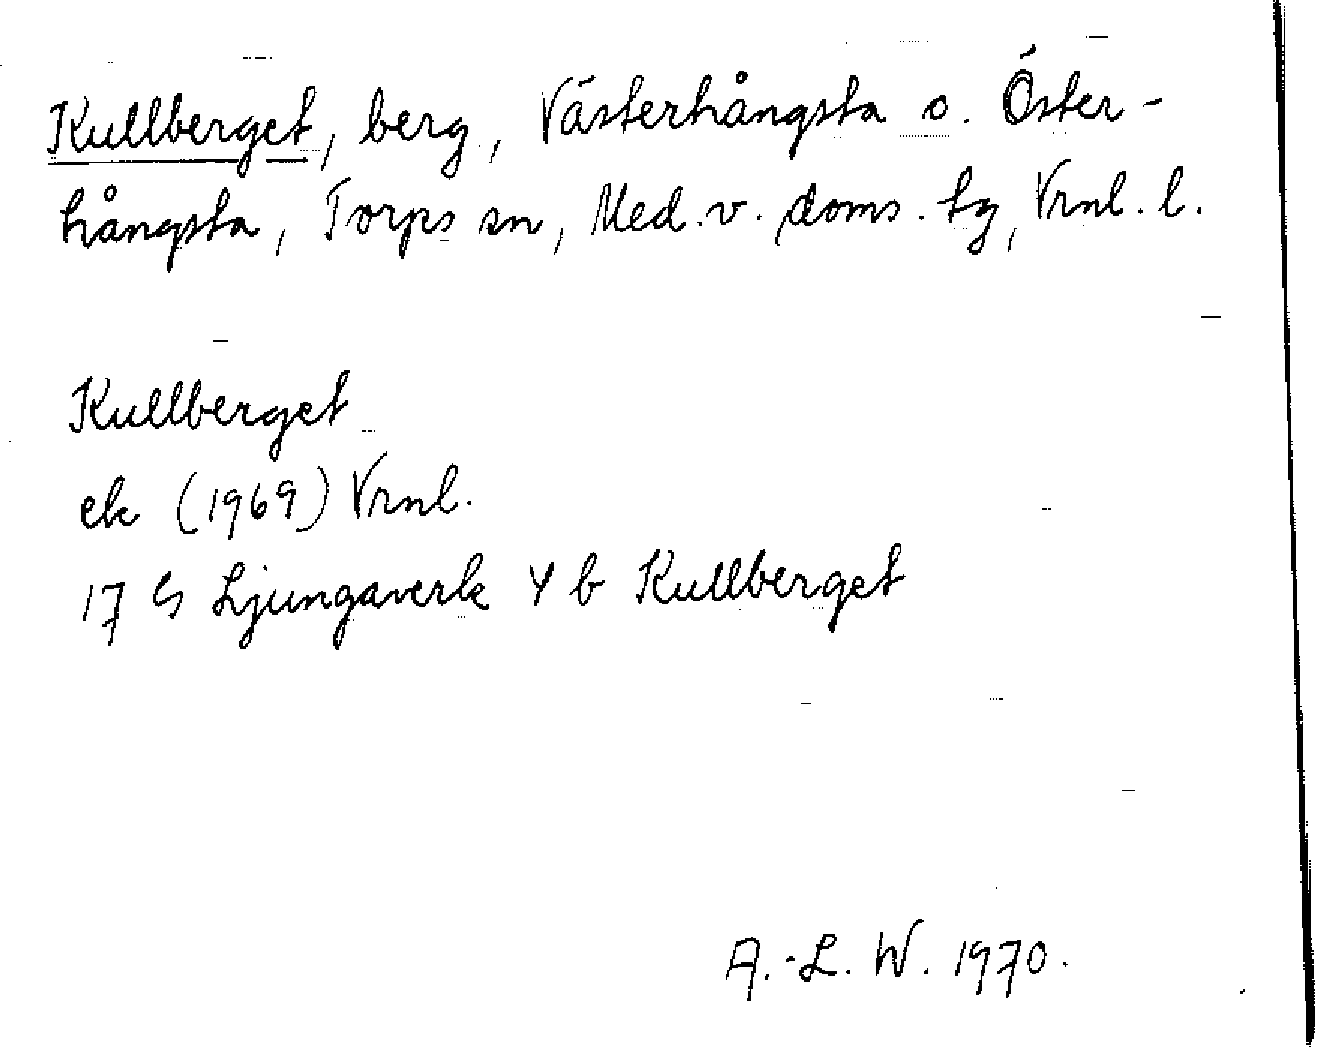 Kullberget, berg, Västerhångsta o. Öster-
hångsta, Torps sn, Med.v. doms. tg, Vrnl. l.
Kullberget
ek (1969) Vrnl.
17 G Ljungaverk 4 b Kullberget
A.-L. W. 1970.